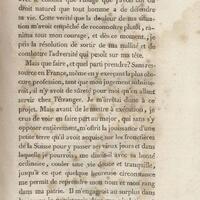 droit naturel que tout homme a de défendre
sa vie. Cette vérité que la douleur de ma situa-
tion m'avait empêché de reconnoître plutôt, ra-
nima tout mon courage, et dès ce moment, je
pris la résolution de sortir de ma nullité et de
combattre l'adversité qui pesoit sur ma tête.
Mais que faire, et quel parti prendre? Sans res-
source en France, même en y exerçant la plus obs-
cure profession, tant que mon jugement subsiste-
roit, il n'y avoit de sûreté pour moi qu'en allant
servir chez l'étranger. Je m'arrêtai donc à ce
projet. Mais avant de le mettre à exécution, je
crus de voir en faire part au major, qui sans s'y
opposer entièrement, m'offrit la jouissance d'une
petite terre qu'il avoit acquise sur les frontières
de la Suisse pour y passer ses vieux jours et dans
laquelle je pourrois, me disoit-il avec sa bonté
ordinaire, couler une vie douce et tranquille,
jusqu'à ce que quelque heureuse circonstance
me permît de reprendre mon nom et mon rang
dans ma patrie. Il m'engageoit au surplus dans